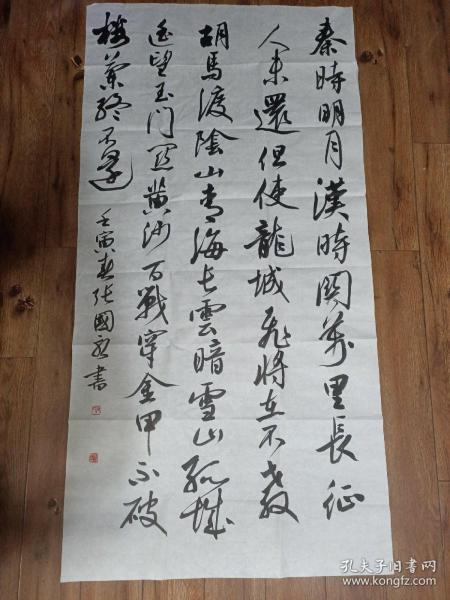 秦時明月漢時関萬里長征
人未還但使龍城飛將在不教
胡馬渡陰山青海長雲暗雪山孤城
遥望玉門関黄沙百戰穿金甲不破
樓蘭終不還
壬寅春張國安書
孔夫子旧书网
www.kongfz.com